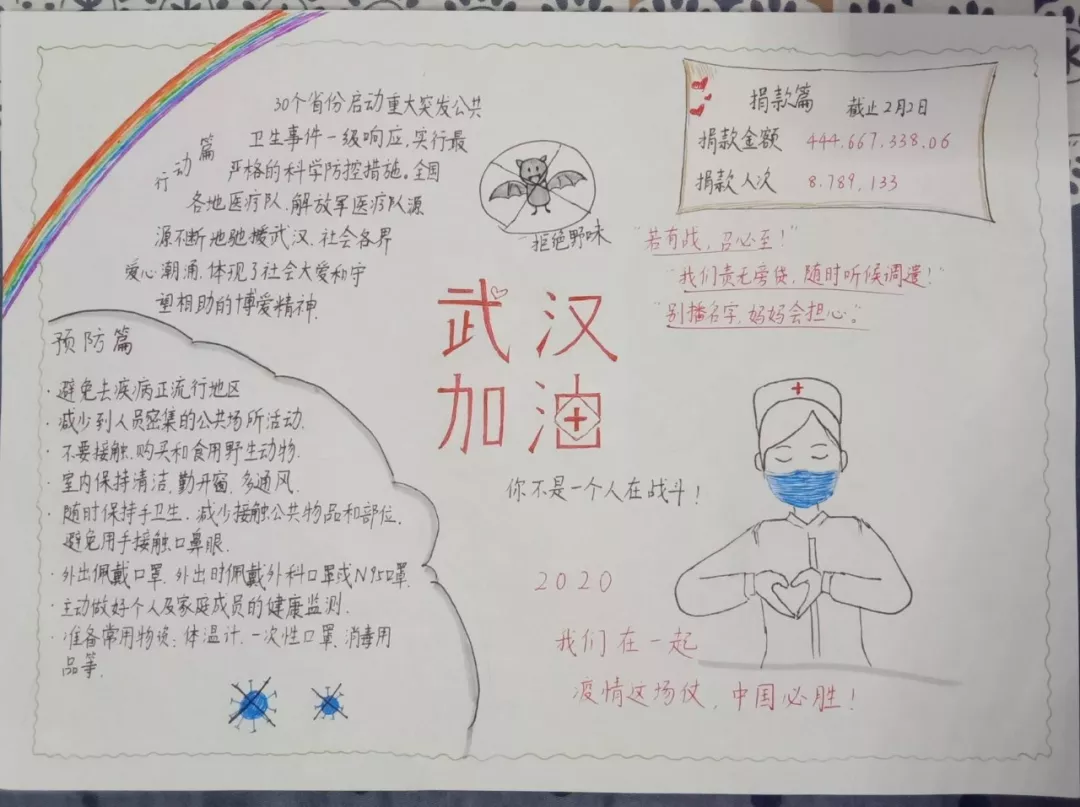 行动篇
30个省份启动重大突发公共
卫生事件一级响应,实行最
严格的科学防控措施。全国
各地医疗队、解放军医疗队源
源不断地驰援武汉,社会各界
爱心潮涌,体现了社会大爱和守
望相助的博爱精神.
拒绝野味
捐款篇 截止2月2日
捐款金额 444.667.338.06
捐款人次 8.789,133
"若有战,召必至!"
"我们责无旁贷,随时听候调遣!"
"别播名字,妈妈会担心。"
武汉
加油
你不是一个人在战斗!
预防篇
·避免去疾病正流行地区
·减少到人员密集的公共场所活动.
·不要接触.购买和食用野生动物.
·室内保持清洁,勤开窗,多通风.
·随时保持手卫生.减少接触公共物品和部位.
避免用手接触口鼻眼.
·外出佩戴口罩.外出时佩戴外科口罩或N95口罩.
·主动做好个人及家庭成员的健康监测.
·准备常用物资:体温计.一次性口罩.消毒用
品等.
2020
我们在一起
疫情这场仗,中国必胜!